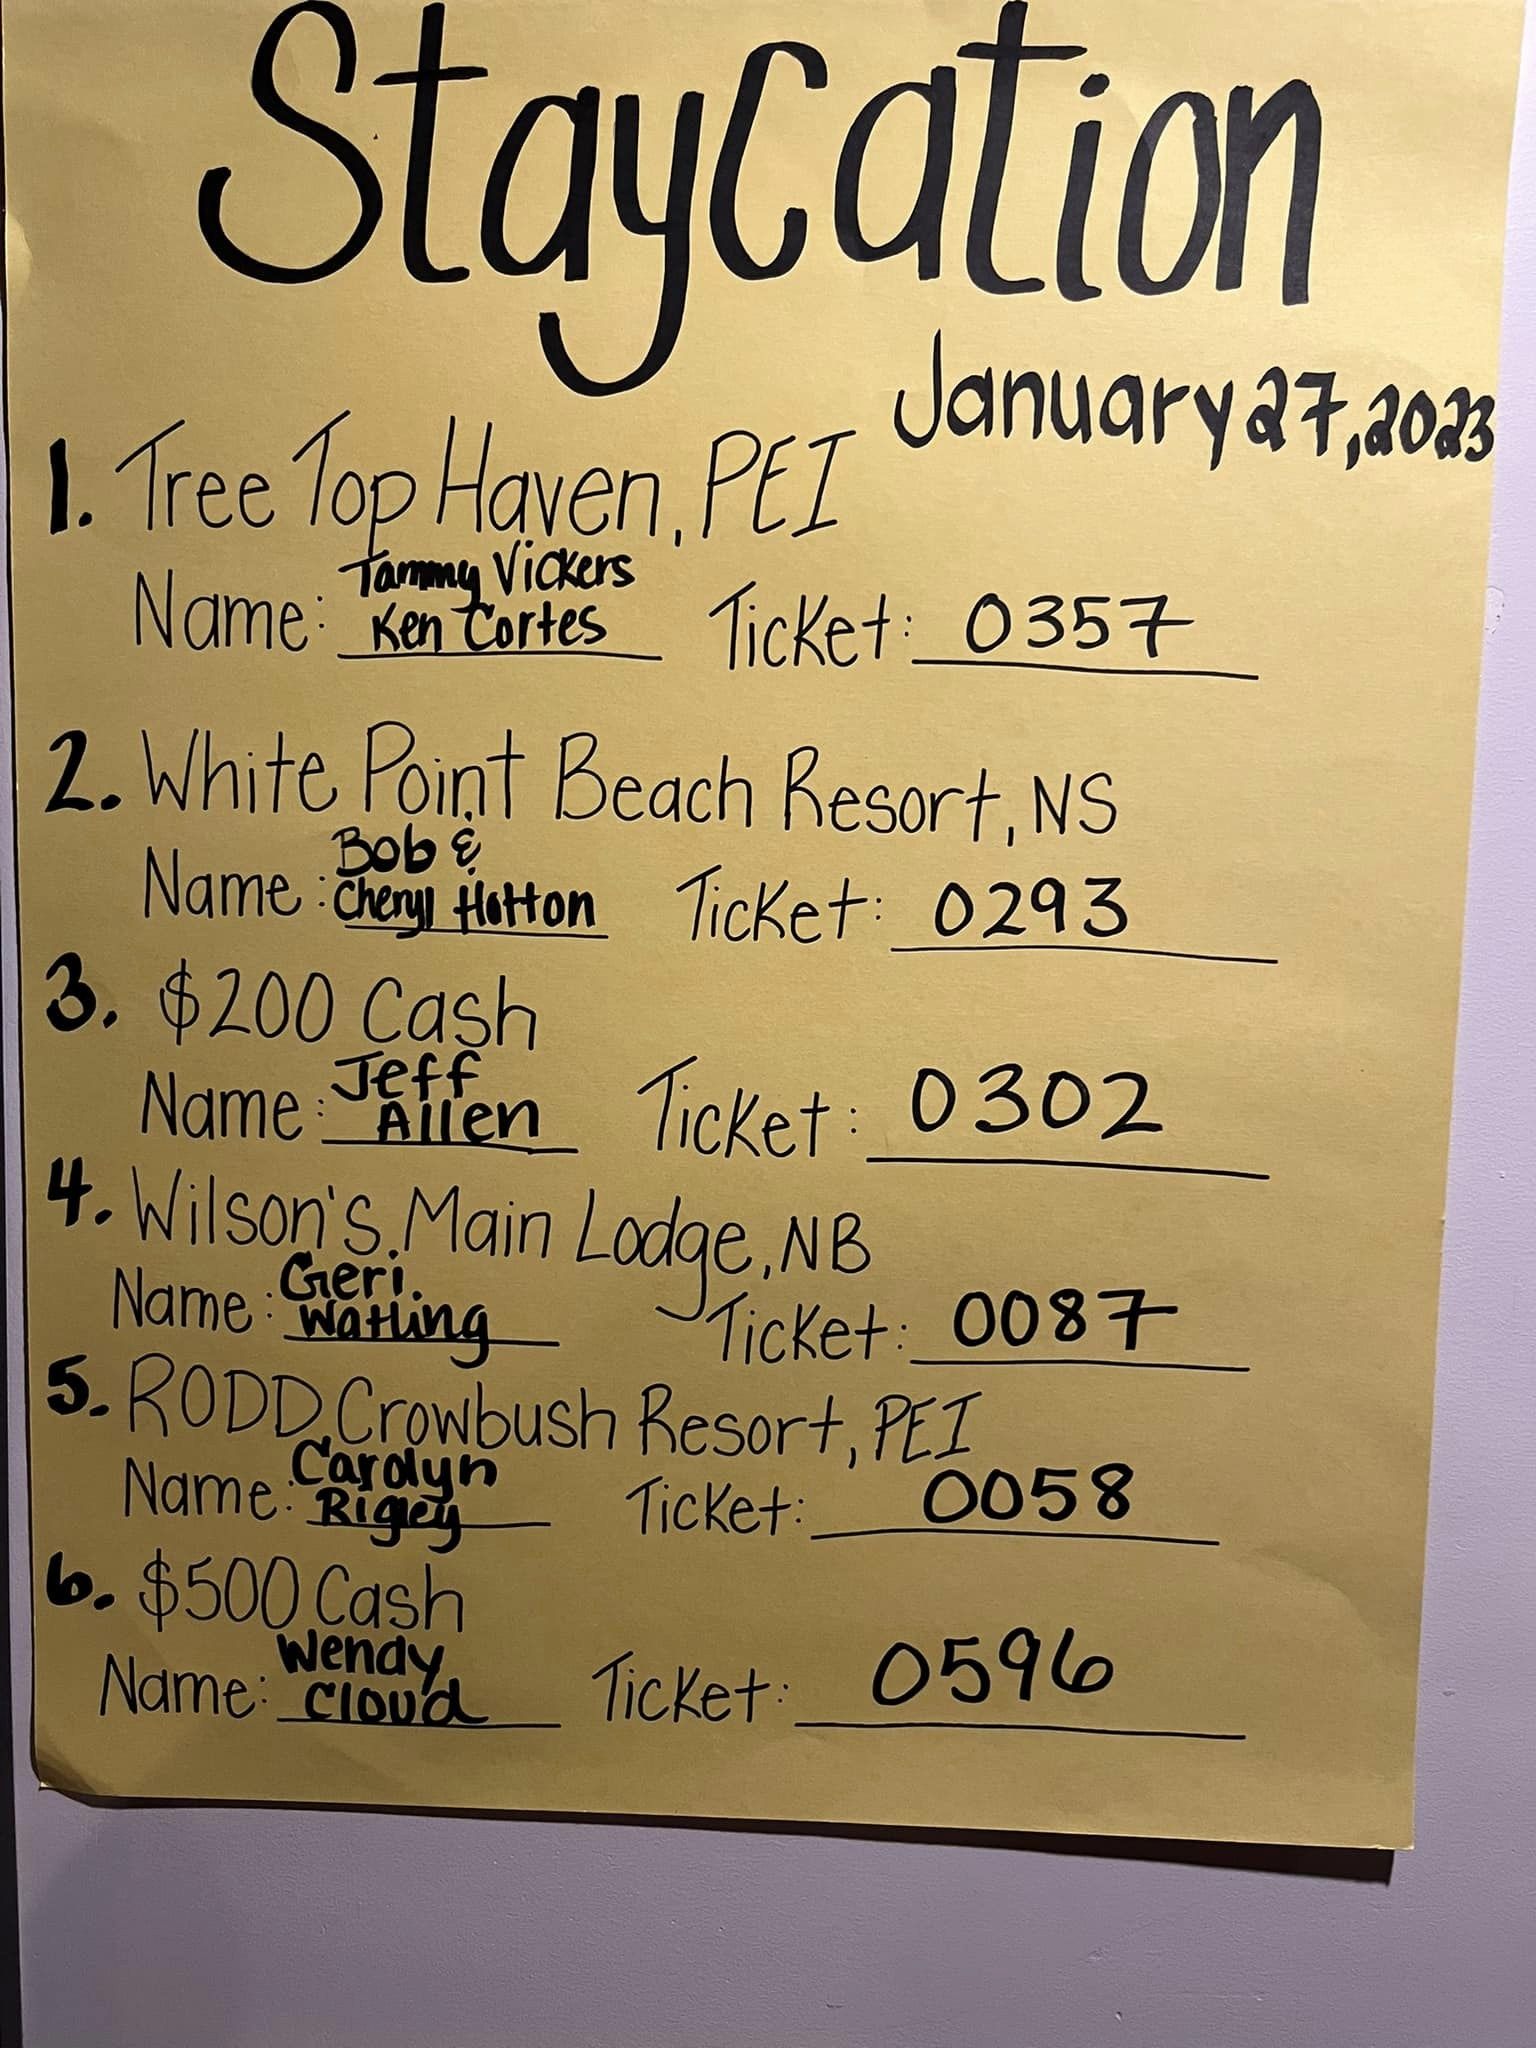 Staycation
January 27, 2023
1. Tree Top Haven, PEI
Tammy Vickers
Name: Ken Cortes Ticket: 0357
2. White Point Beach Resort, NS
Bob &
Name: Cheryl Hotton Ticket: 0293
3. $200 Cash
Jeff
Name: Allen Ticket: 0302
4. Wilson's Main Lodge, NB
Geri
Name: Watling Ticket: 0087
5. RODD Crowbush Resort, PEI
Carolyn
Name: Rigley Ticket: 0058
6. $500 Cash
Wendy
Name: Cloud Ticket: 0596